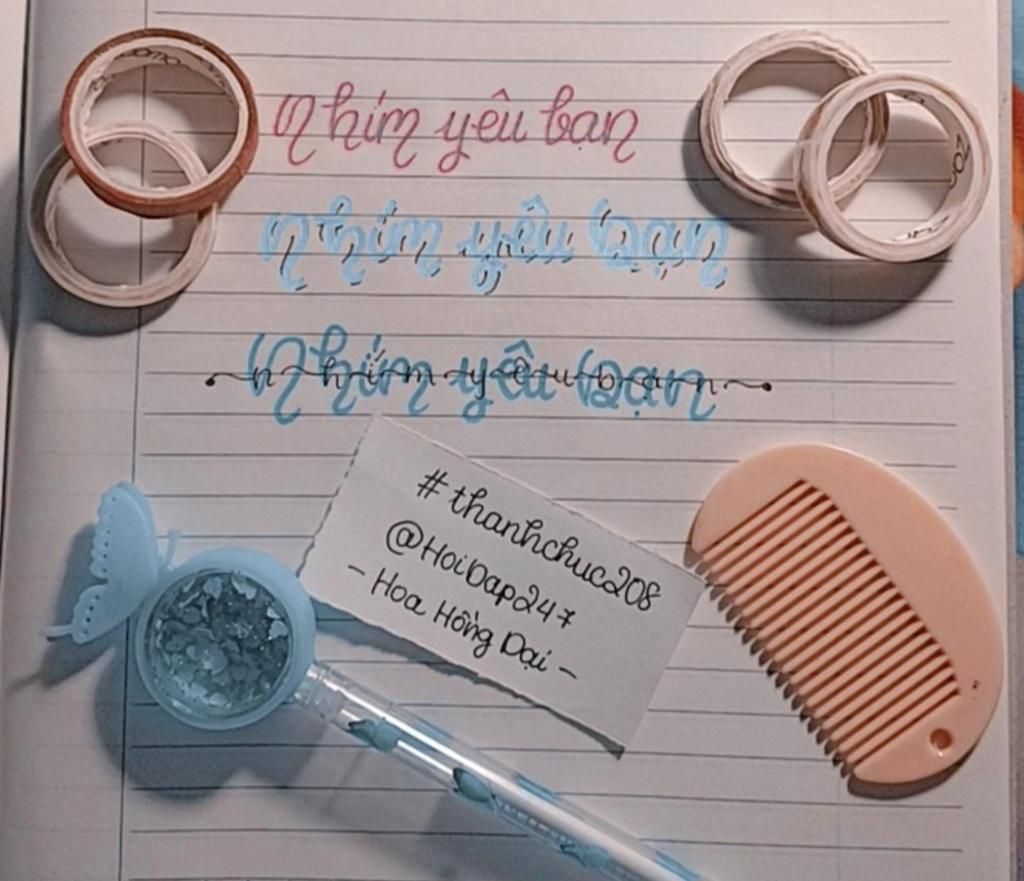 Nhím yêu bạn
Nhím yêu bạn
Nhím yêu bạn
nhím yêu bạn
#thanhchuc208
@HoiDap247
- Hoa Hồng Dại -